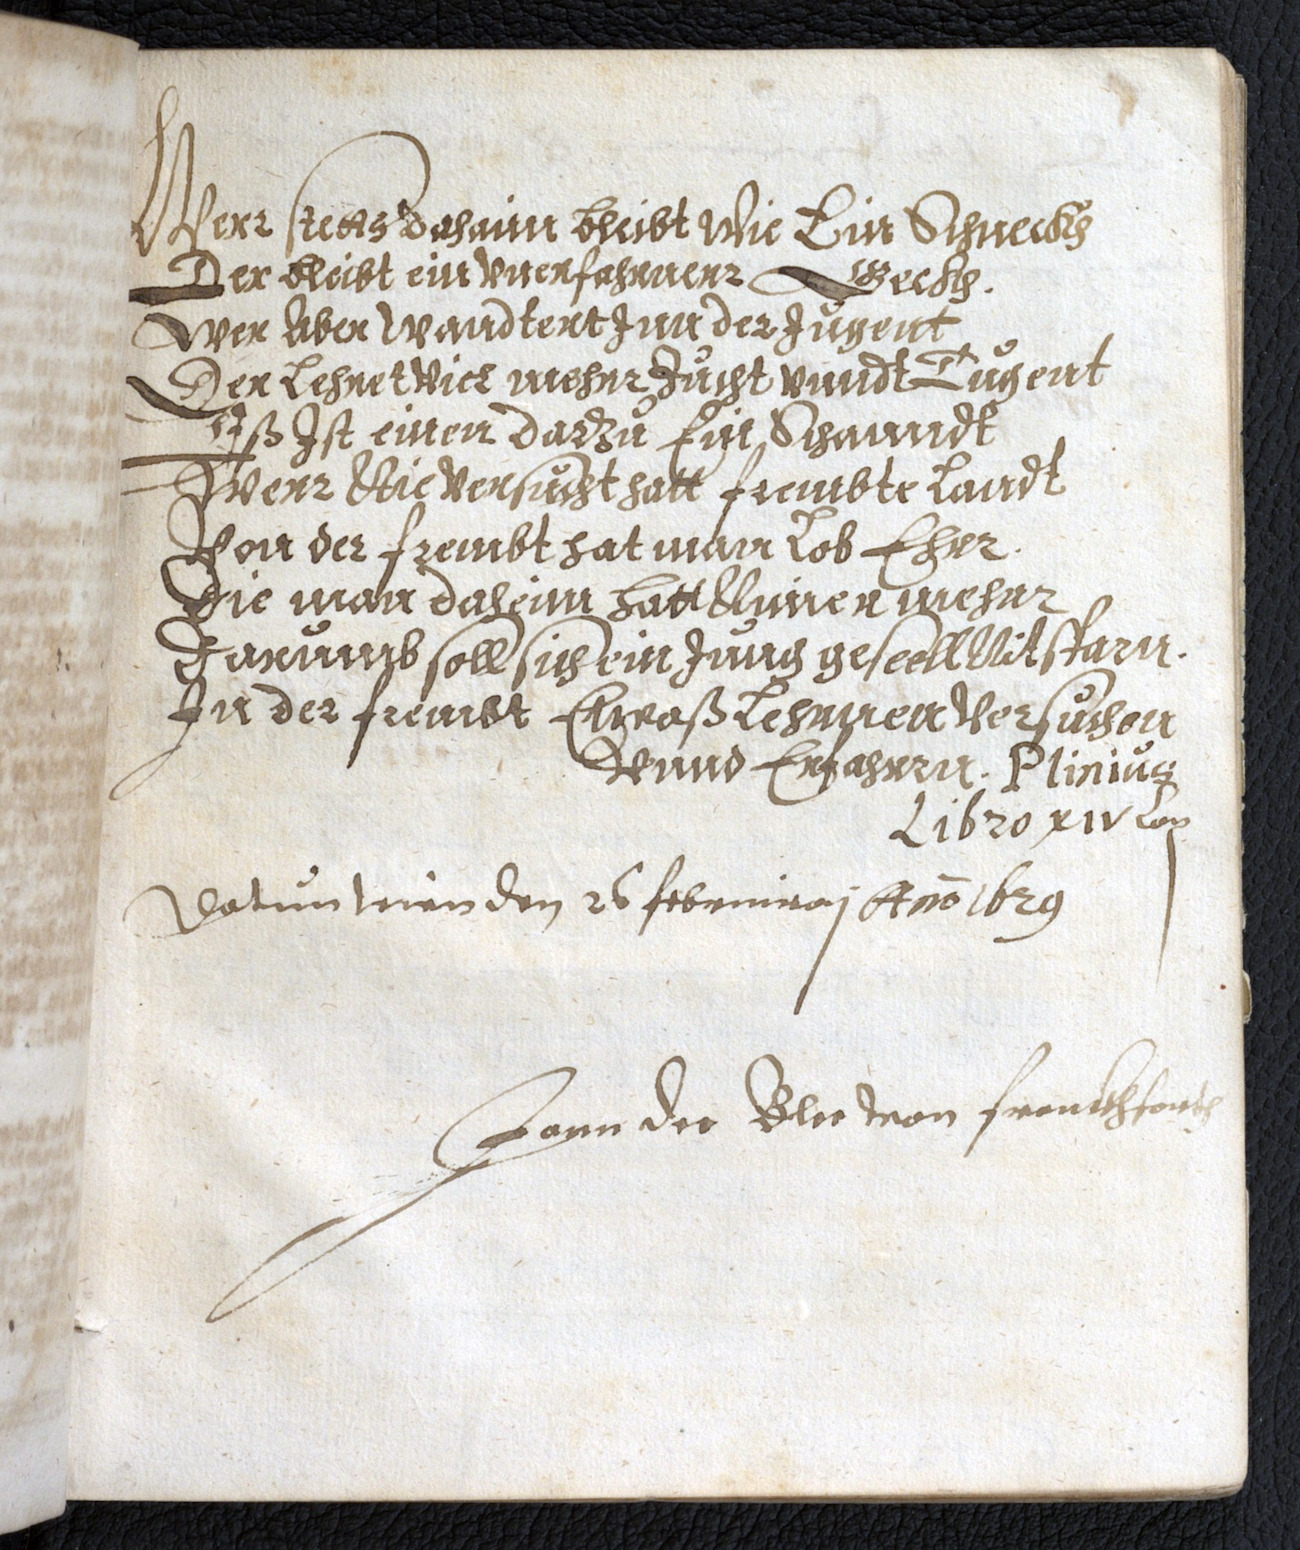 Werr stetts dahaim bleibt Wie Ein Schneckh
Der bleibt ein Vnerfahrnerr Geckh.
Wer Aber Wandtert Inn der Jugent
Der Lehnet Viel mehrr Zucht vnndt Tugent
Eß Ist einen darzu Ein Schanndt
Werr Nie Versucht hatt frembte Landt
Von der frembt hat man Lob Ehrr.
Die man daheim hatt Nimer mehrr
Darumb soll sich ein Jung gesell Nit sparn.
In der frembt Etwaß Lehrnen Versuchen
Vnnd Erfahrrn. Plinius
Libro XIV
Datum wien den 26 februirai Ano 1629
Hann der Blee von franckhfordt